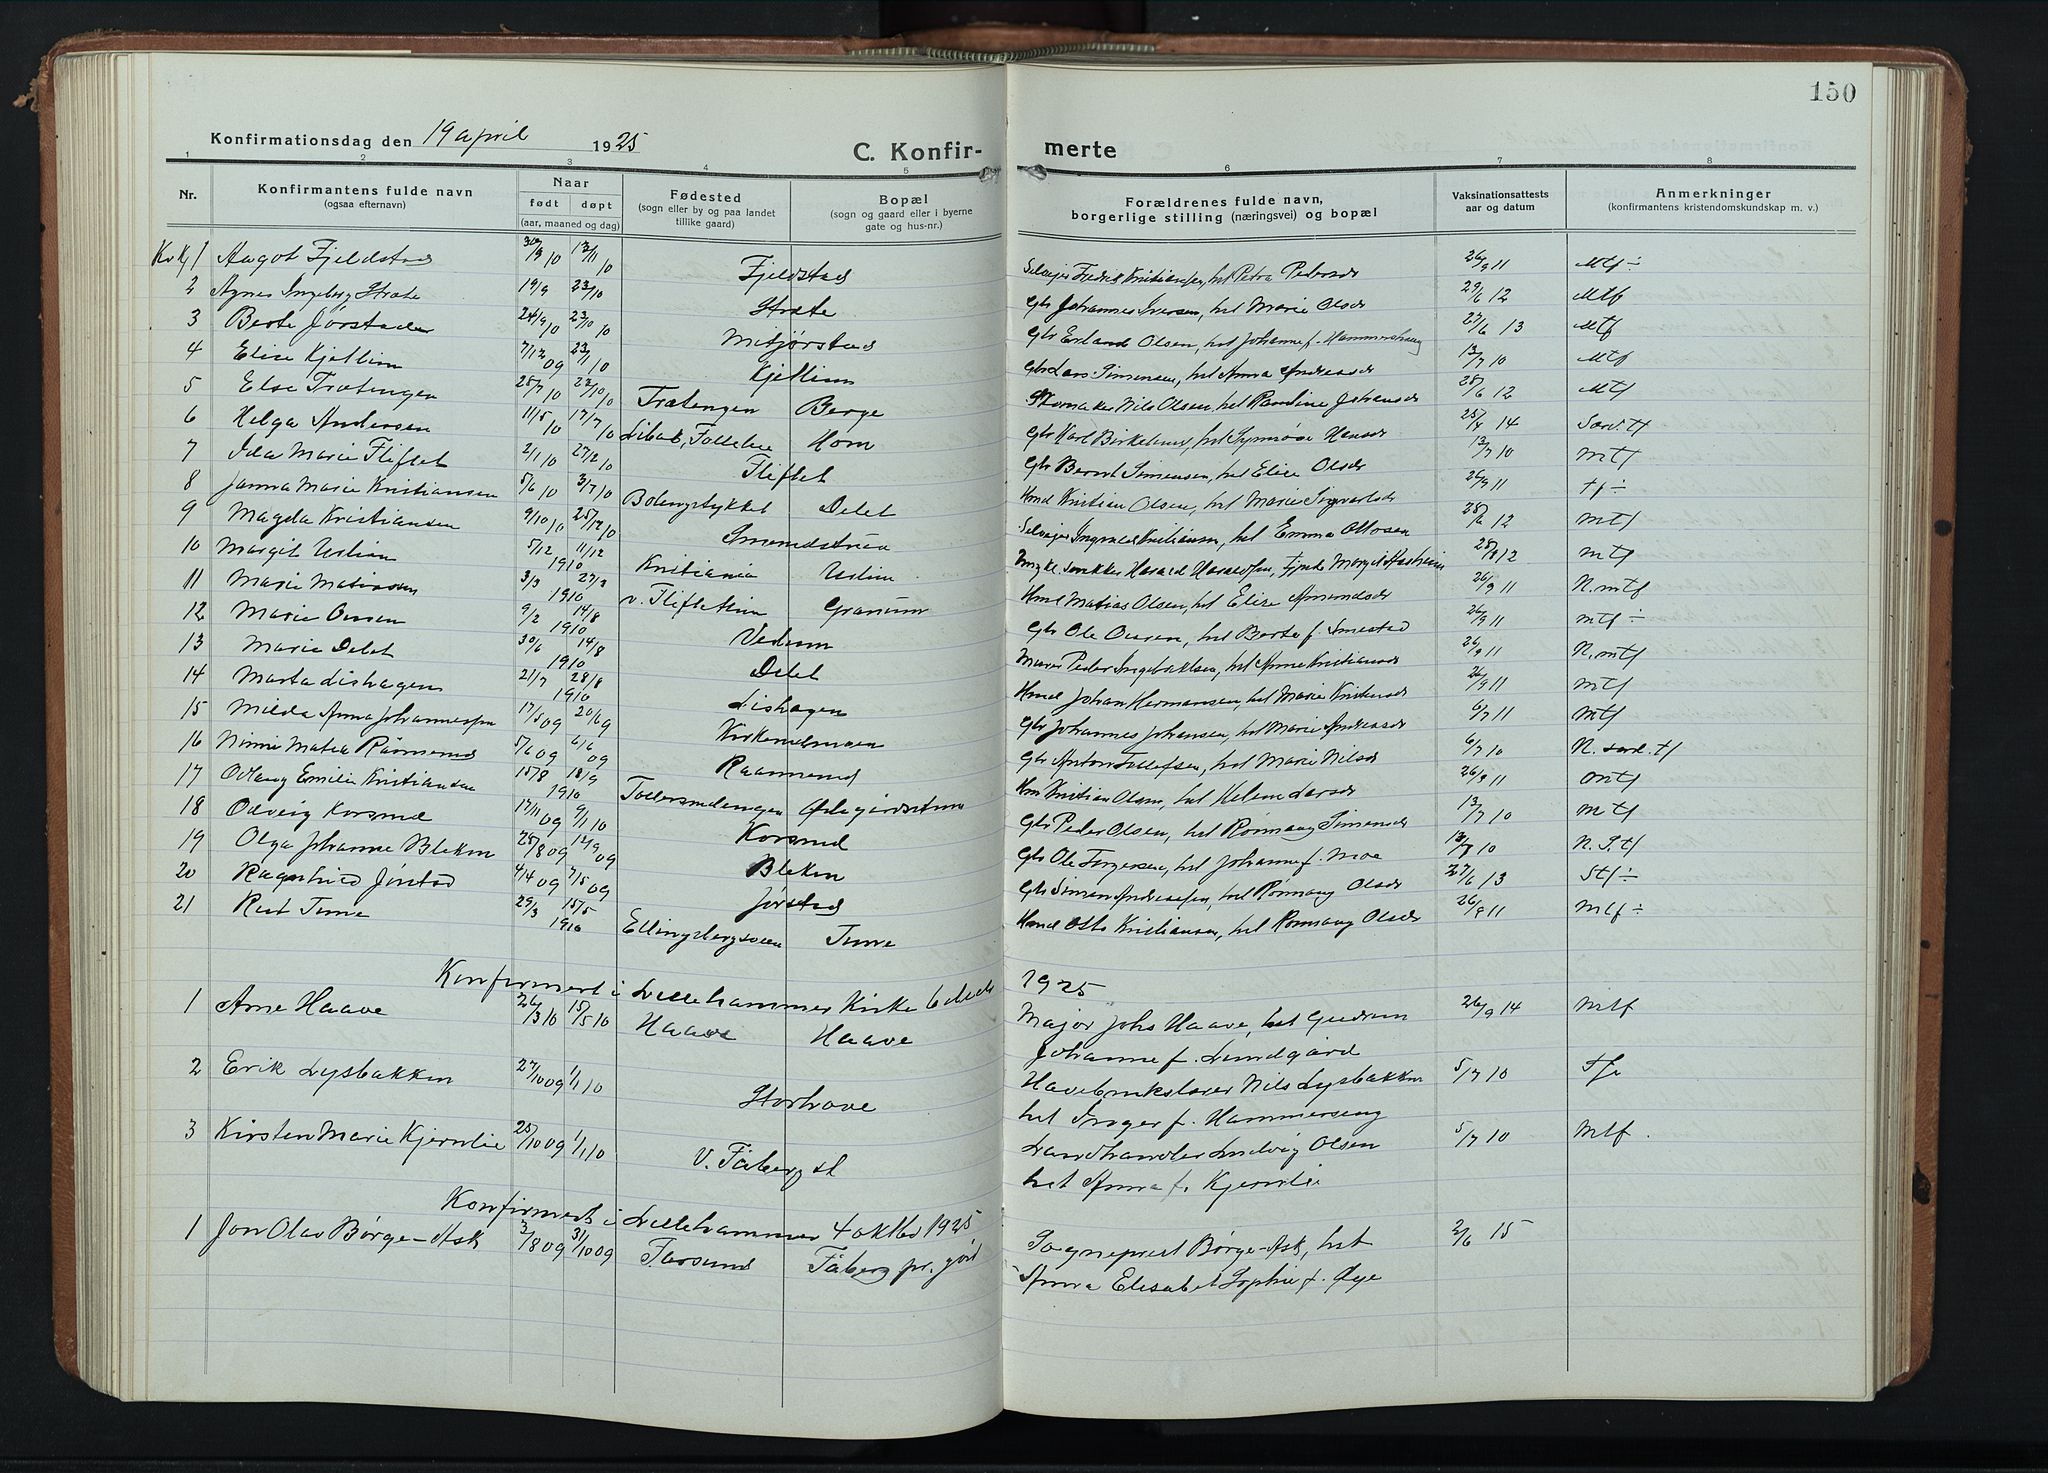 150
Konfirmationsdag den 19 april 1925
C. Konfir- merte
1 2 3 4 5 6 7 8
Nr. Konfirmantens fulde navn (ogsaa efternavn) Naar født døpt (aar, maaned og dag) Fødested (sogn eller by og paa landet tillike gaard) Bopæl (sogn og gaard eller i byerne gate og hus-nr.) Forældrenes fulde navn, borgerlige stilling (næringsvei) og bopæl Vaksinationsattests aar og datum Anmerkninger (konfirmantens kristendomskundskap m. v.)
1 Aagot Fjeldstad Fjeldstad Selveier Fredrik Kristiansen, hst Petra Pedersd 26/9 11 Mtf ÷
2 Agnes Ingeborg Strate 19/9 23/10 Strate Gbr Johannes Iversen, hst Marie Olsd 29/6 12 Mtf
3 Berte Jørstad 24/9 10 23/10 10 Mitjørstad Gbr Erland Olsen, hst Johanne f. Hammershaug 27/6 13 Mtf
4 Elise Kjetlien 7/12 09 23/1 10 Kjetlien Gbr Lars Simensen, hst Anna Andreasd 13/7 10 Mtf
5 Else Trætengen 25/7 10 22/10 10 Trætengen Berge Skomaker Nils Olsen, hst Pauline Johansd 28/6 12 Mtf
6 Helga Andersen 11/5 10 17/7 10 Hom Gbr Karl Birkelund, hst Synnøve Hansd 14 Særd. tf
7 Ida Marie Fliflet 2/1 10 27/2 10 Fliflet Gbr Bernt Simensen, hst Elise Olsd 13/7 10 Mtf
8 Janna Marie Kristiansen 5/6 10 3/7 10 Delet Hmd Kristian Olsen, hst Marie Sigvartsd 26/9 11 tf ÷
9 Magda Kristiansen 9/10 10 25/12 10 Smedstua Selveier Ingvald Kristiansen, hst Emma Ottosen 28/6 12 mtf
10 Margit Uslien 5/12 11/12 1910 Kristiania Uslien 12 mtf
11 Marie Matiassen 3/3 27/3 1910 v. Fliflethun Granum Hmd Matias Olsen, hst Elise Amundsd 26/9 11 N. mtf
12 Marie Onsen 9/2 14/8 1910 Vedum Gbr Ole Onsen, hst Berte f. Smestad 26/9 11 mtf ÷
13 Marie Delet 30/6 14/8 1910 Delet Murer Peder Ingebretsen, hst Anne Kristiansd 26/9 11 N. mtf
14 Marta Lishagen 21/7 28/8 1910 Lishagen Hmd Johan Hermansen, hst Marie Kristensd 26/9 11 mtf
15 Milda Anna Johannessen 17/5 09 20/6 09 Gbr Johannes Johansen, hst Marie Andreasd 6/7 11 mtf
16 5/6 09 6/6 09 Gbr Anton Tollefsen, hst Marie Nilsd 6/7 10 N. særd. tf
17 Odlaug Emilie Kristiansen 15/8 18/9 1910 Hmd Kristian Olsen, hst Helene Larsd 26/9 11 mtf
18 Odveig Korsrud 17/11 09 9/1 10 Korsrud Gbr Peder Olsen, hst Rønnaug Simensd 13/7 10 mtf
19 Olga Johanne Bleken 25/8 09 12/9 09 Bleken Gbr Ole Torgersen, hst Johanne f. Moe 10 N. S. tf
20 Ragnhild Jørstad 4/4 09 7/5 09 Jørstad Gbr Simen Andreassen, hst Rønnaug Olsd 27/6 13 Stf ÷
21 Rut Tune 29/3 15/5 1910 Ellingsbergsveen Tune Hmd Otto Kristiansen, hst Rønnaug Olsd 26/9 11 Mtf ÷
Konfirmert i Lillehammer Kirke 1925
1 Arne Haave 26/3 10 15/5 10 Haave Haave Major Johs Haave, hst Gudrun 26/9 14 Mtf
Johanne f. Lundgård
2 Erik Lysbakken 27/10 09 1/1 10 Storhove Havebrukslærer Nils Lysbakken 5/7 10 Tf
hst Inger f. Hammerseng
3 Kirsten Marie Kjernlie 25/10 09 1/1 10 V. Fåberg st Landhandler Ludvig Olsen 5/7 10 Mtf.
hst Anna f. Kjernlie
Konfirmert i Lillehammer 4 oktbr 1925
1 Jon Olav Børge-Ask 3/8 09 31/10 09 Farsund Fåberg pr.gård Sogneprest Børge-Ask, hst 2/6 15
Anna Elisabet Sophie f. Øye